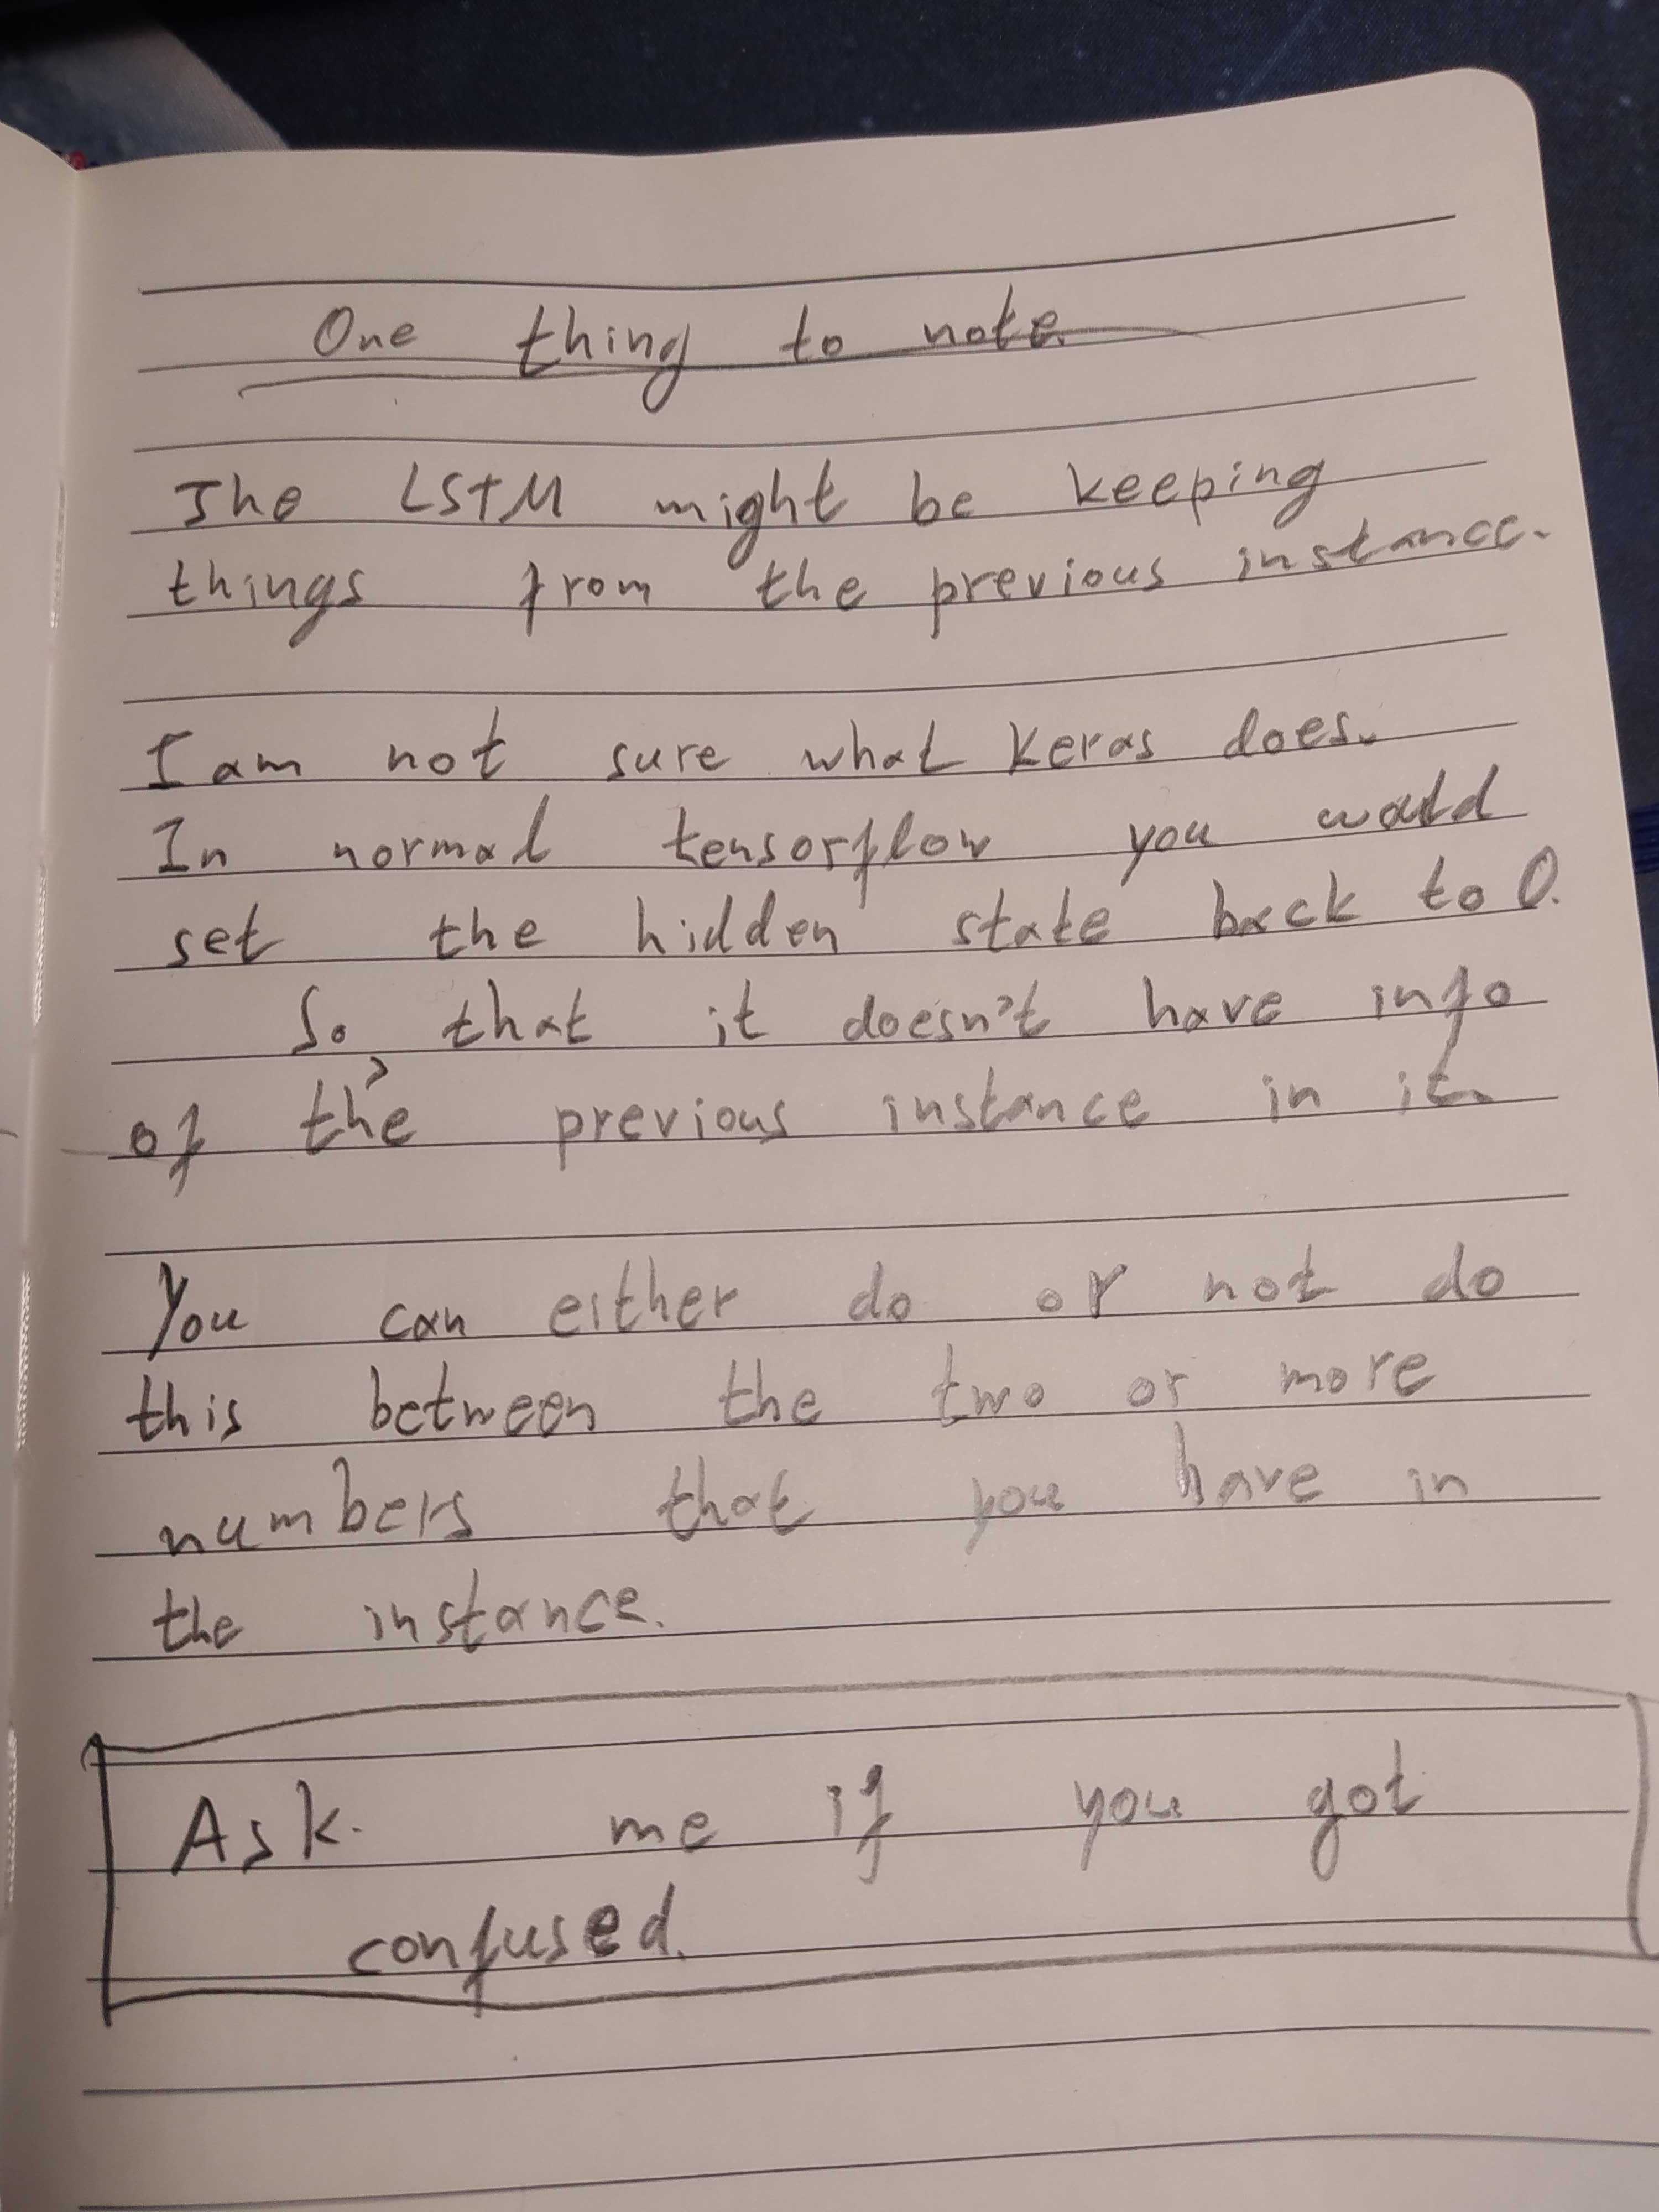 One thing to note.
The LSTM might be keeping
things from the previous instance.
I am not sure what Keras does.
In normal tensorflow you would
set the hidden state back to 0.
So that it doesn't have info
of the previous instance in it.
You can either do or not do
this between the two or more
numbers that you have in
the instance.
Ask me if you got
confused.